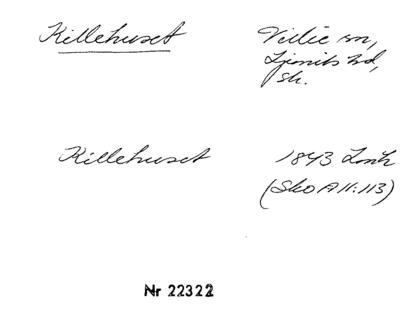 Killehuset
Villie sn,
Ljunits hd,
Sk.
Killehuset
1843
(Sko A 11:113)
Nr 22322